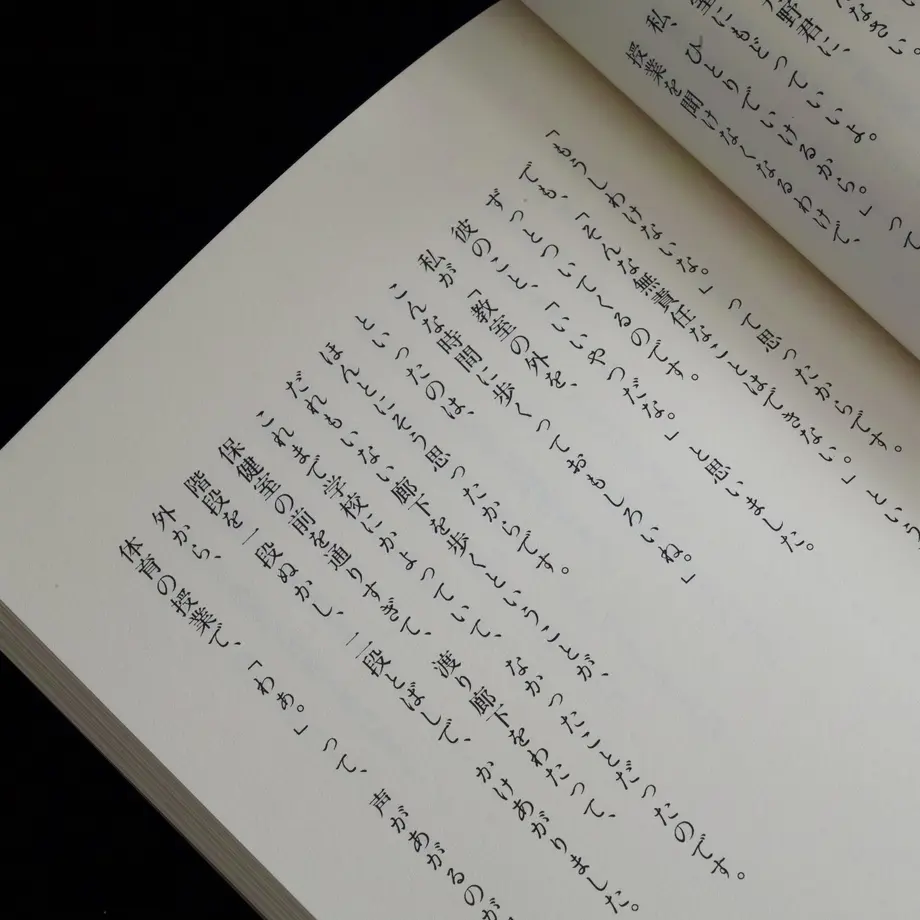 なさい。
野君に、
室にもどっていいよ。
私、ひとりでいけるから。」って
授業を聞けなくなるわけで、
「もうしわけないな。」って思ったからです。
でも、「そんな無責任なことはできない。」という
ずっとついてくるのです。
彼のこと、「いいやつだな。」と思いました。
私が「教室の外を、
こんな時間に歩くっておもしろいね。」
といったのは、
ほんとにそう思ったからです。
だれもいない廊下を歩くということが、
これまで学校にかよっていて、なかったことだったのです。
保健室の前を通りすぎて、渡り廊下をわたって、
階段を一段ぬかし、二段とばしで、かけあがりました。
外から、
体育の授業で、「わあ。」って、声があがるのが